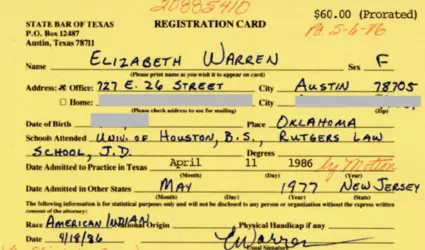 20885410
$60.00 (Prorated)
STATE BAR OF TEXAS REGISTRATION CARD
P.O. Box 12487
Austin, Texas 78711
Pd. 5-6-86
Name ELIZABETH WARREN Sex F
(Please print name as you wish it to appear on card)
Address: x Office: 727 E. 26 STREET City AUSTIN 78705
Home: City
(Please check address to use for mailing) (Zip)
Date of Birth Place OKLAHOMA
Schools Attended UNIV. OF HOUSTON, B.S., RUTGERS LAW
SCHOOL, J.D. Degrees
Date Admitted to Practice in Texas April 11 1986 by Motion
(Month) (Day) (Year)
Date Admitted in Other States MAY 1977 NEW JERSEY
(Month) (Day) (Year) (State)
The following information is for statistical purposes only and will not be disclosed to any person or organization without the express written
consent of the attorney:
Race AMERICAN INDIAN National Origin Physical Handicap if any
Date 4/18/86 EWarren